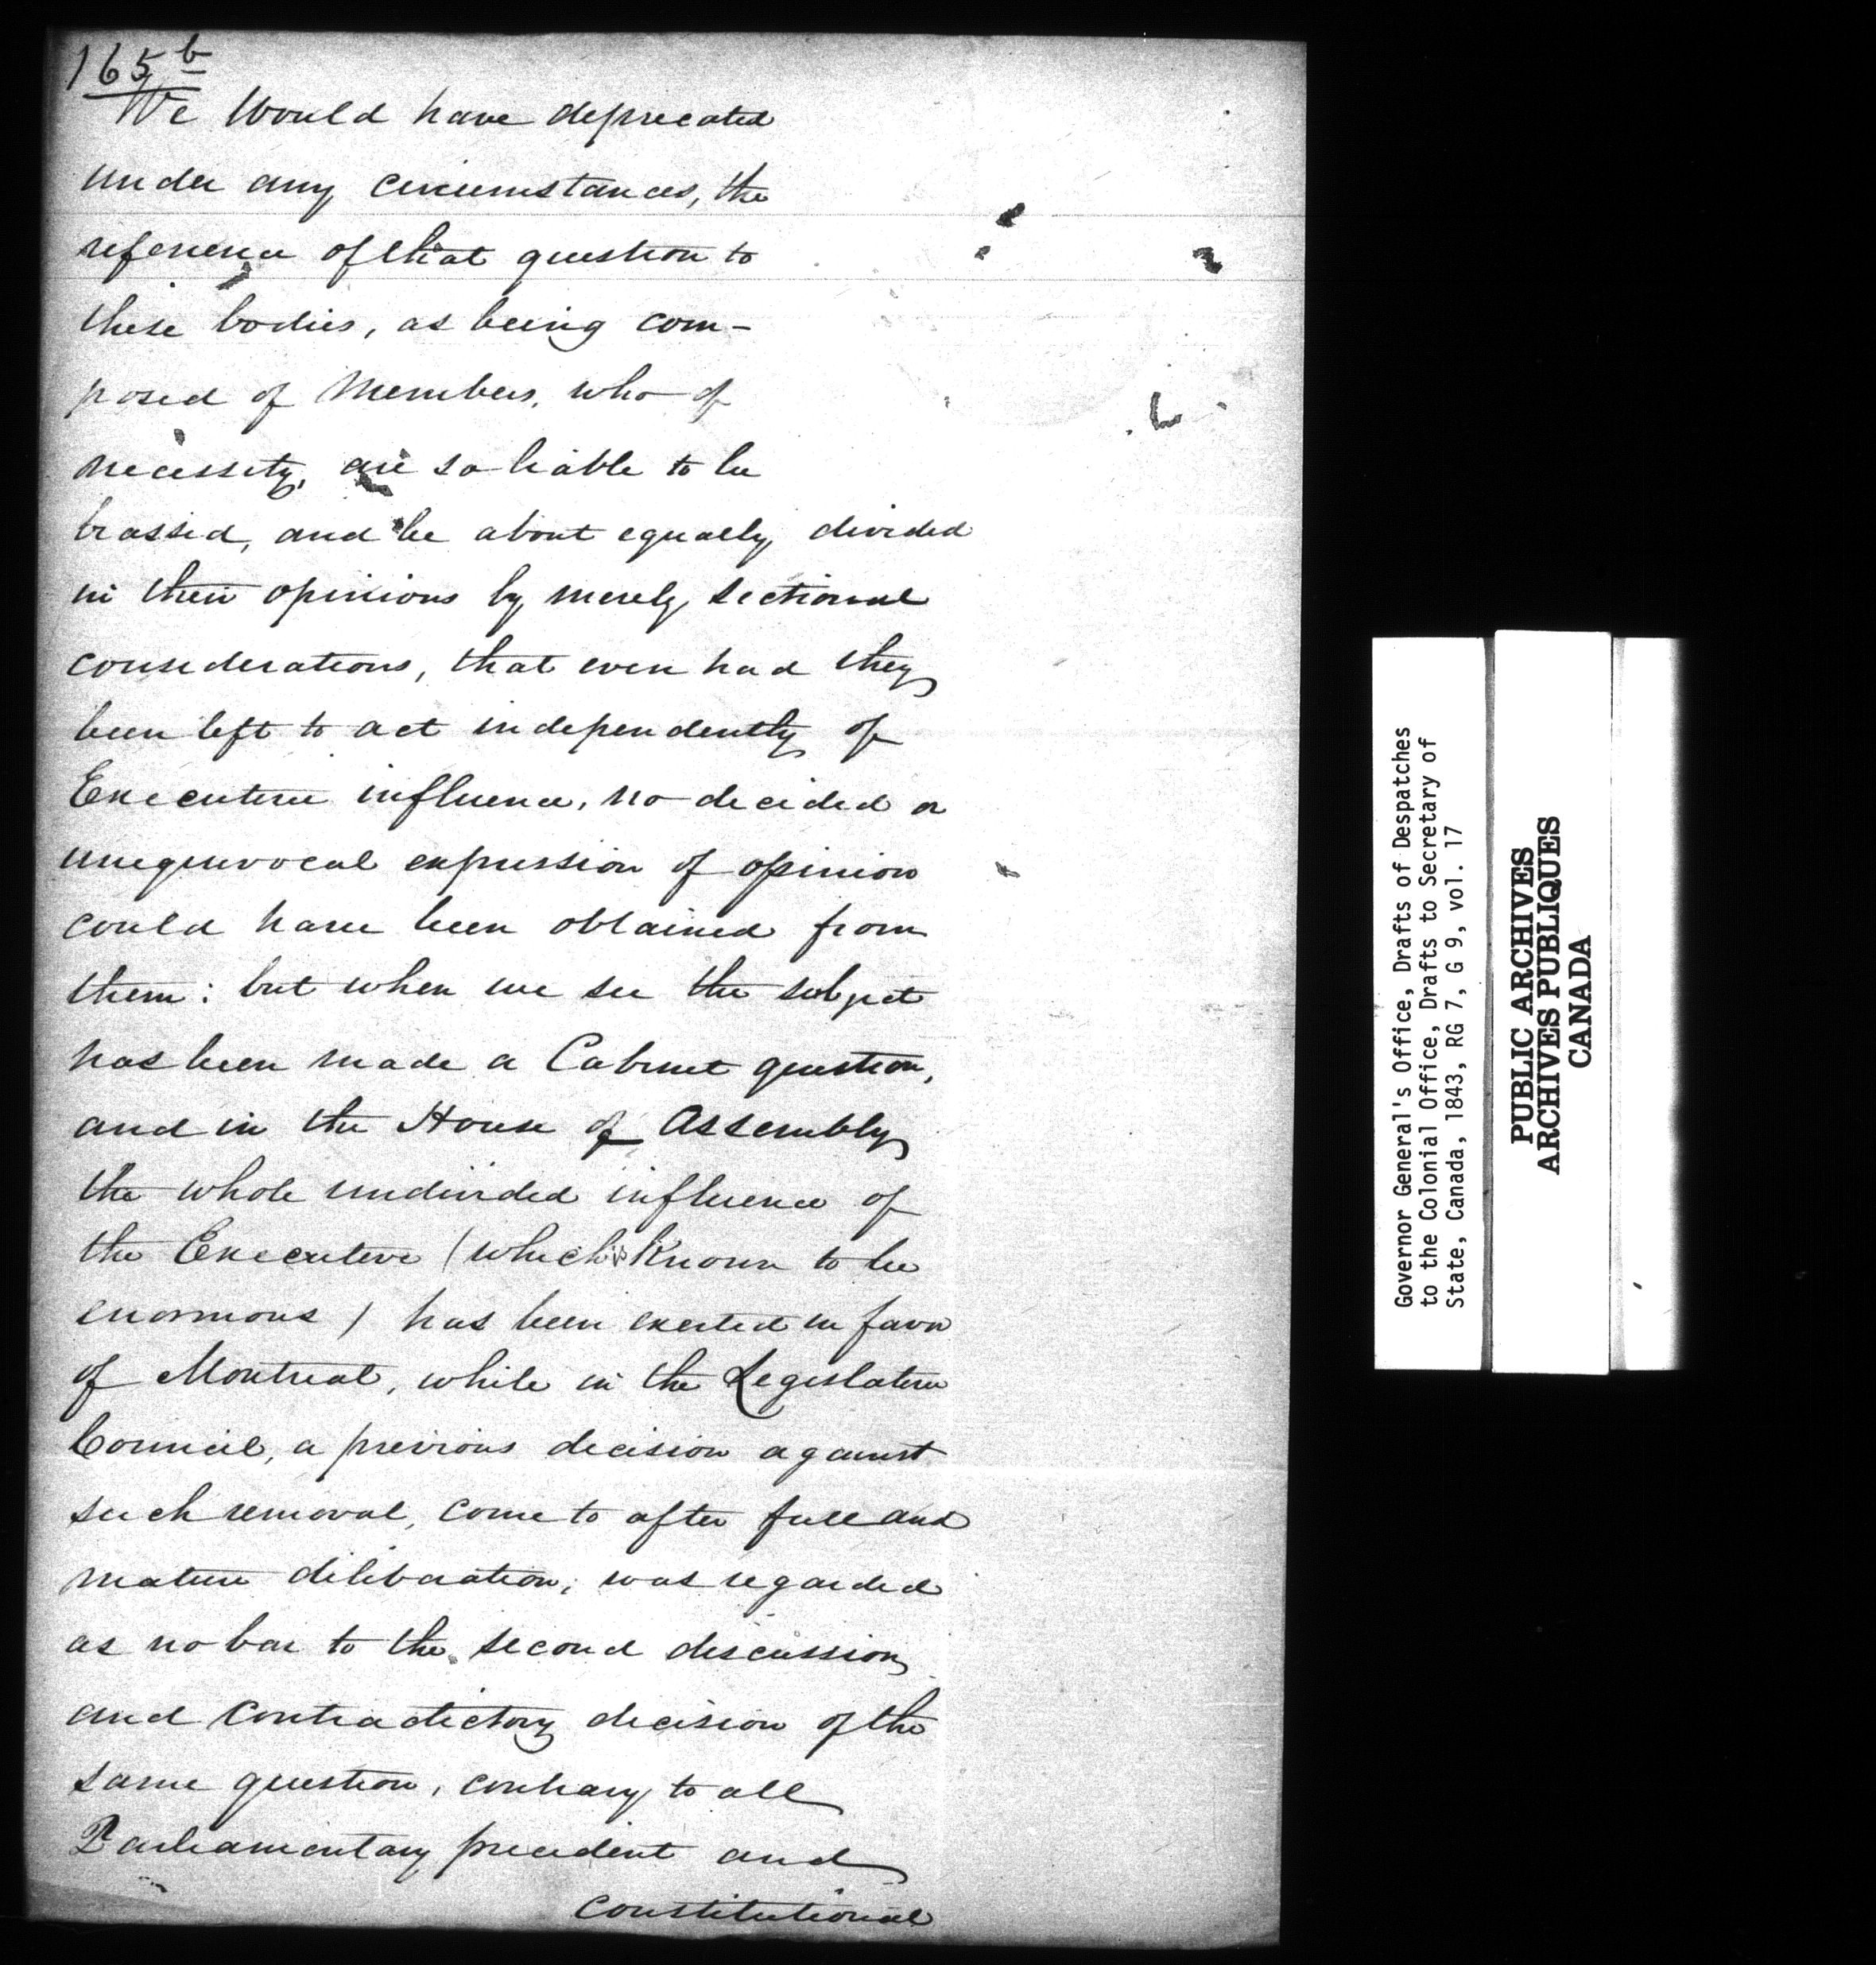 165 b
We Would have deprecated
under any circumstances, the
reference of that question to
these bodies, as being com-
posed of Members, who of
necessity, are so liable to be
biassed, and be about equally divided
in their opinions by merely sectional
considerations, that even had they
been left to act independently of
Executive influence, no decided or
unequivocal expression of opinion
could have been obtained from
them: but when we see the subject
has been made a Cabinet question,
and in the House of Assembly
the whole undivided influence of
the Executive (which is Known to be
enormous) has been exerted in favor
of Montreal, while in the Legislative
Council, a previous decision against
such removal, come to after full and
mature deliberation, was regarded
as no bar to the second discussion
and contradictory decision of the
same question, contrary to all
Parliamentary precedent and
constitutional
Governor General's Office, Drafts of Despatches
to the Colonial Office, Drafts to Secretary of
State, Canada, 1843, RG 7, G 9, vol. 17
PUBLIC ARCHIVES
ARCHIVES PUBLIQUES
CANADA